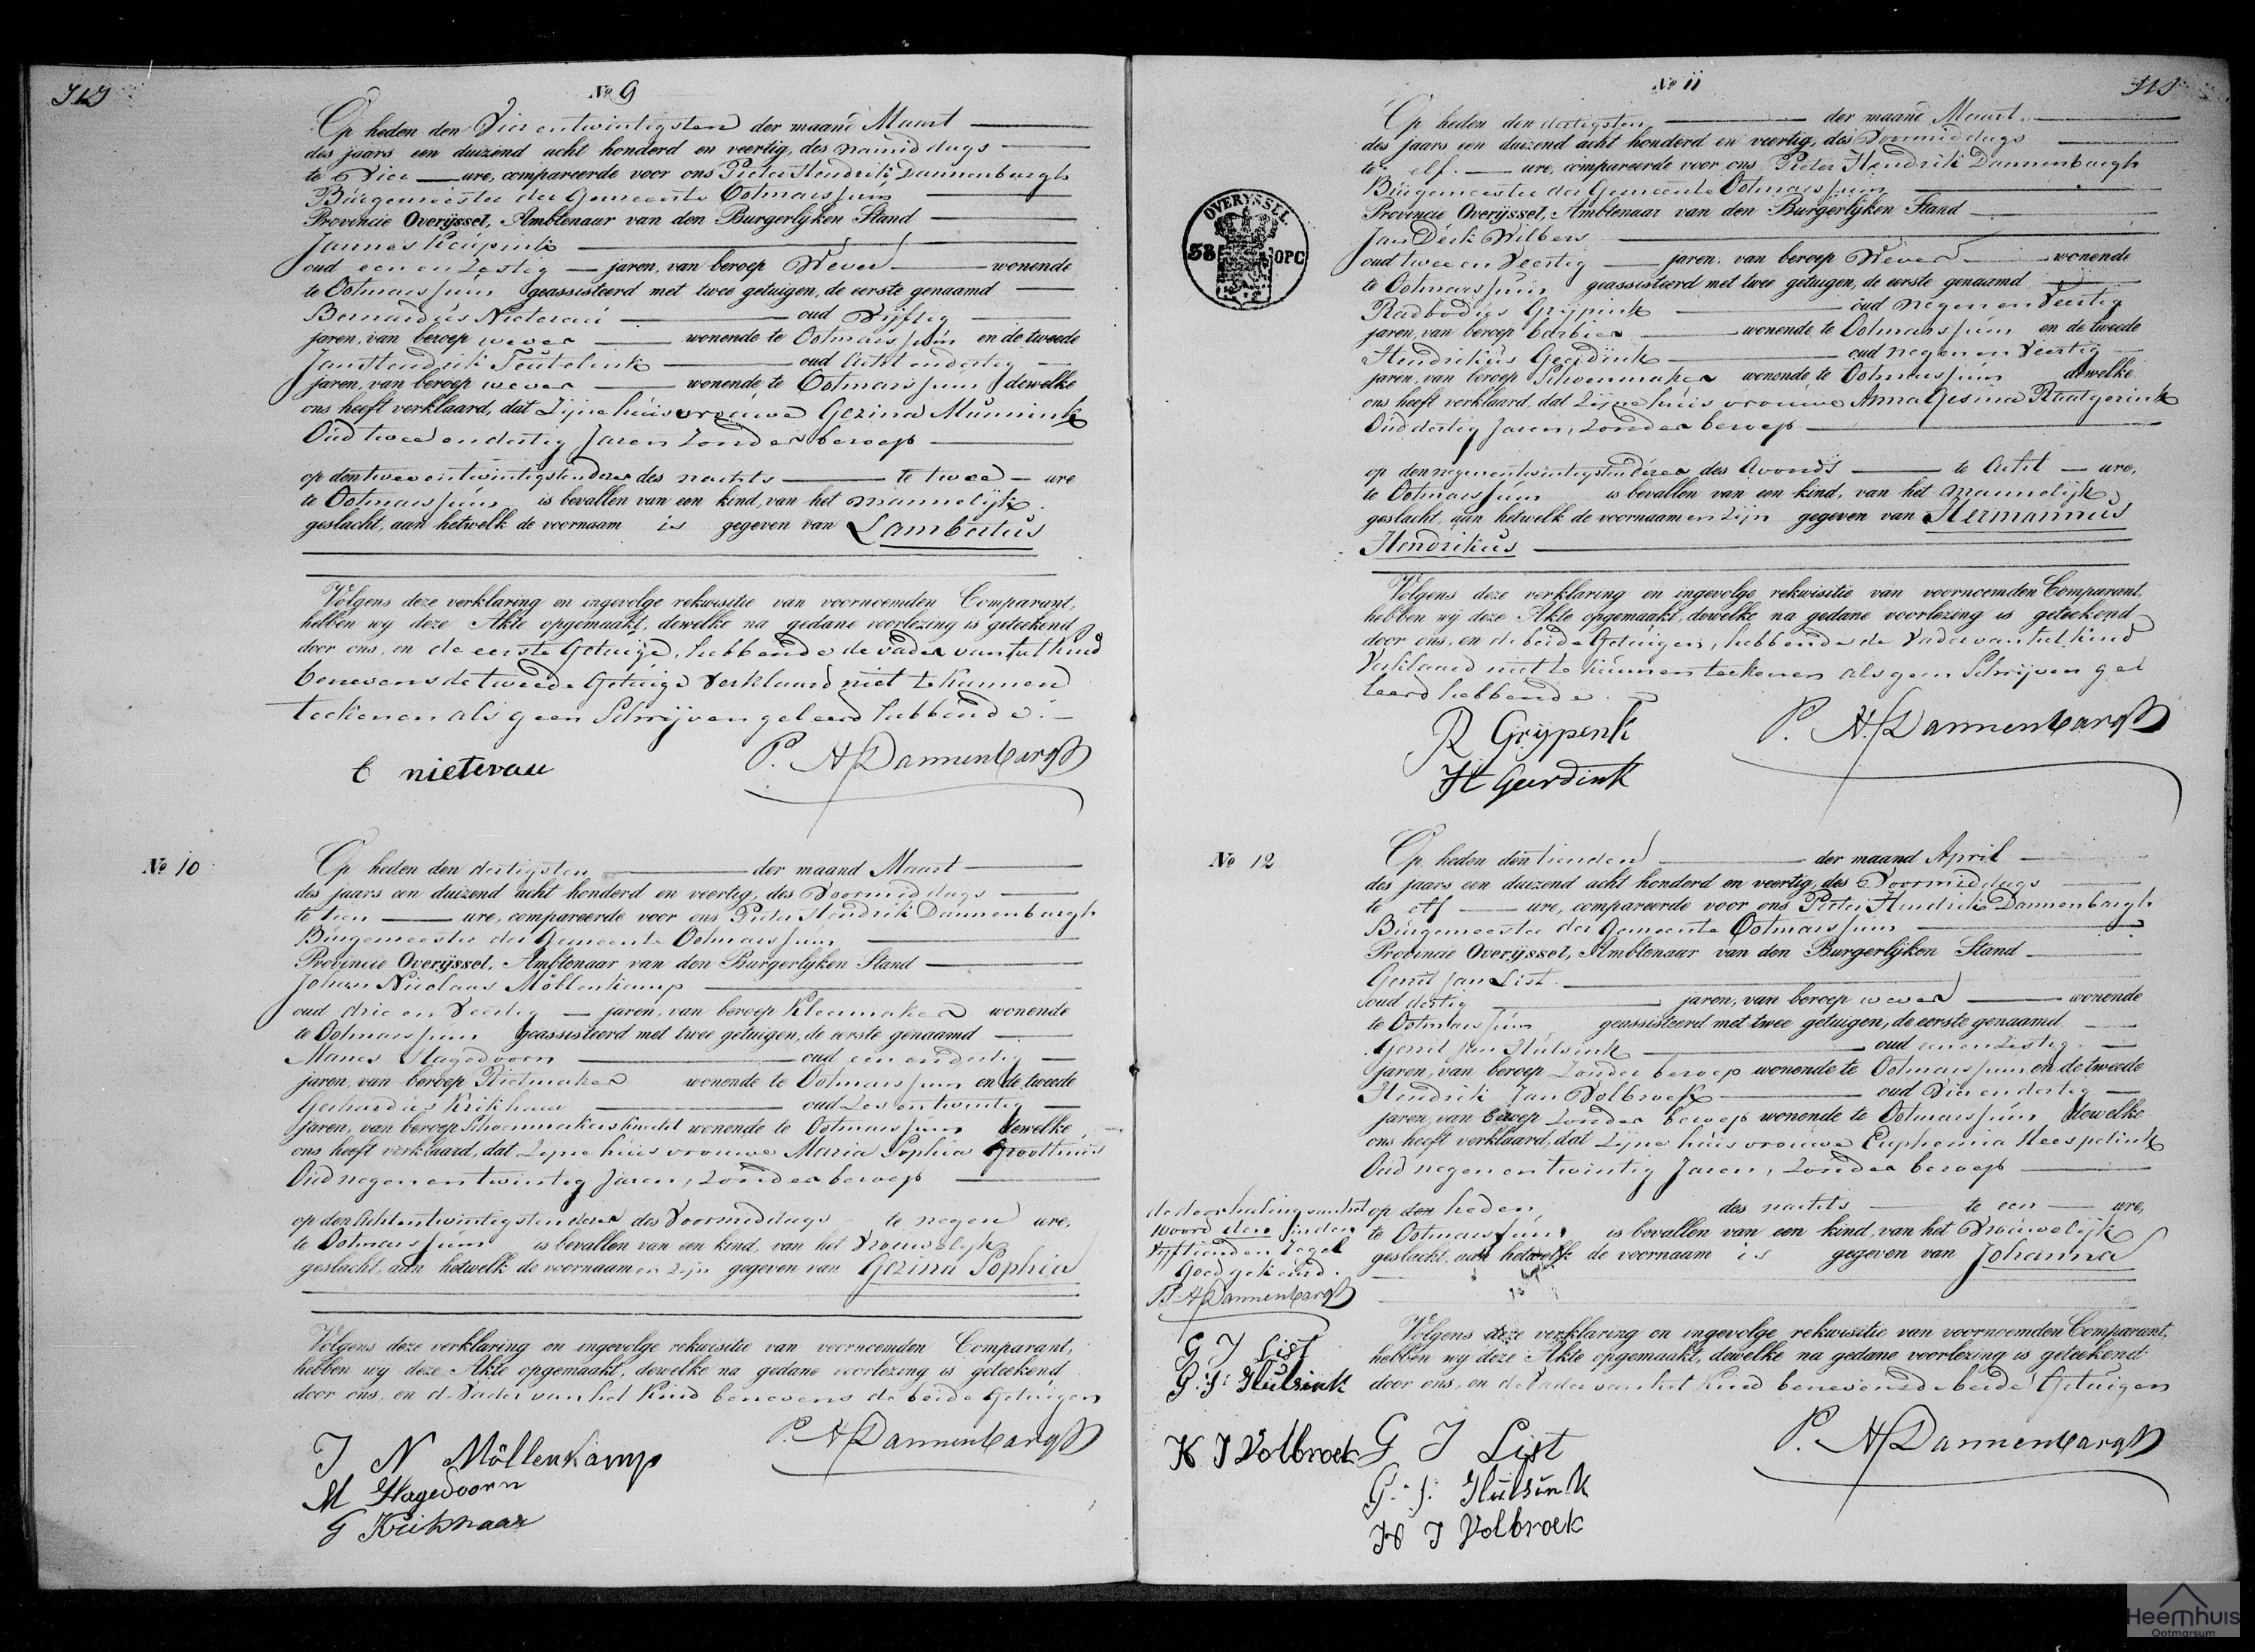 No 9
Op heden den Vier entwintigsten der maand Maart
des jaars een duizend acht honderd en veertig, des namiddags
te Vier ure, compareerde voor ons Pieter Hendrik Dannenbargh
Burgemeester der Gemeente Ootmarssum
Provincie Overijssel, Ambtenaar van den Burgerlijken Stand
Jannes
oud een en Zestig jaren, van beroep Wever wonende
te Ootmarssum geassisteerd met twee getuigen, de eerste genaamd
Bernardus Nieterau oud Vijftig
jaren, van beroep wever wonende te Ootmarssum en de tweede
Jan Hendrik Teutelink oud Acht endertig
jaren, van beroep wever wonende te Ootmarssum dewelke
ons heeft verklaard, dat Zijne huisvrouwe Gezina Munnink
Oud twee en dertig Jaren Zonder beroep
op den twee entwintigsten dezer des nachts te twee ure
te Ootmarssum is bevallen van een kind, van het mannelijk
geslacht, aan hetwelk de voornaam is gegeven van Lambertus
Volgens deze verklaring en ingevolge rekwisitie van voornoemden Comparant,
hebben wy deze Akte opgemaakt, dewelke na gedane voorlezing is geteekend
door ons, en de eerste Getuige, hebbende de vader van het kind
benevens de tweede Getuige Verklaard niet te kunnen
teekenen als geen Schrijven geleerd hebbende.
B nieterau
P. H Dannenbargh
No 10
Op heden den dertigsten der maand Maart
des jaars een duizend acht honderd en veertig, des Voormiddags
te tien ure, compareerde voor ons Pieter Hendrik Dannenbargh
Burgemeester der Gemeente Ootmarssum
Provincie Overijssel, Ambtenaar van den Burgerlijken Stand
Johan Nicolaas Möllenkamp
oud drie en Veertig jaren, van beroep Kleermaker wonende
te Ootmarssum geassisteerd met twee getuigen, de eerste genaamd
Manes Hagedoorn oud een endertig
jaren, van beroep Rietmaker wonende te Ootmarssum en de tweede
Gerhardus Krikhaar oud Zes entwintig
jaren, van beroep Schoenmakersknecht wonende te Ootmarssum dewelke
ons heeft verklaard, dat Zijne huisvrouwe Maria Sophia Groothuis
Oud negen en twintig Jaren, Zonder beroep
op den Acht entwintigsten dezer des Voormiddags te negen ure,
te Ootmarssum is bevallen van een kind, van het Vrouwelijk
geslacht, aan hetwelk de voornaam en zijn gegeven van Gezina Sophia
Volgens deze verklaring en ingevolge rekwisitie van voornoemden Comparant,
hebben wy deze Akte opgemaakt, dewelke na gedane voorlezing is geteekend,
door ons, en de Vader van het Kind benevens de beide Getuigen
J N Möllenkamp
P. H Dannenbargh
M Hagedoorn
G Krikhaar
No 11
OVERYSSEL
38 OPC
Op heden den dertigsten der maand Maart
des jaars een duizend acht honderd en veertig, des Voormiddags
te elf ure, compareerde voor ons Pieter Hendrik Dannenbargh
Burgemeester der Gemeente Ootmarssum
Provincie Overijssel, Ambtenaar van den Burgerlijken Stand
Jan Derk Wilbers
oud twee en Veertig jaren, van beroep Wever wonende
te Ootmarssum geassisteerd met twee getuigen, de eerste genaamd
Radbodus Grijpink oud negen en Veertig
jaren, van beroep barbier wonende te Ootmarssum en de tweede
Hendrikus Geerdink oud negen en Veertig
jaren, van beroep Schoenmaker wonende te Ootmarssum dewelke
ons heeft verklaard, dat Zijne huisvrouwe Anna Gesina Raatgerink
Oud dertig Jaren, Zonder beroep
op den negenentwintigsten dezer des Avonds te Acht ure,
te Ootmarssum is bevallen van een kind, van het mannelijk
geslacht, aan hetwelk de voornaam en zijn gegeven van Hermannus
Hendrikus
Volgens deze verklaring en ingevolge rekwisitie van voornoemden Comparant,
hebben wy deze Akte opgemaakt, dewelke na gedane voorlezing is geteekend
door ons, en de beide Getuigen, hebbende de Vader van het Kind
Verklaard niet te kunnen teekenen als geen Schrijven gel
eerd hebbende.
R Grijpenk
P. H. Dannenbargh
H Geerdink
No 12
Op heden den tienden der maand April
des jaars een duizend acht honderd en veertig, des Voormiddags
te elf ure, compareerde voor ons Pieter Hendrik Dannenbargh
Burgemeester der Gemeente Ootmarssum
Provincie Overijssel, Ambtenaar van den Burgerlijken Stand
Gerrit Jan List
oud dertig jaren, van beroep wever wonende
te Ootmarssum geassisteerd met twee getuigen, de eerste genaamd
Gerrit Jan Hulsink oud een en Zestig
jaren, van beroep Zonder beroep wonende te Ootmarssum en de tweede
Hendrik Jan Volbroek oud Vier en dertig
jaren, van beroep Zonder beroep wonende te Ootmarssum dewelke
ons heeft verklaard, dat Zijne huisvrouwe Euphemia Heespelink
Oud negen en twintig Jaren, Zonder beroep
op den heden des nachts te een ure,
te Ootmarssum is bevallen van een kind, van het Vrouwelijk
geslacht, aan hetwelk de voornaam is gegeven van Johanna
de doorhaling van het
woord den in den
Vijftienden regel
Goedgekeurd.
P. H Dannenbargh
G J List
G: J: Hulsink
H J Volbroek
Volgens deze verklaring en ingevolge rekwisitie van voornoemden Comparant,
hebben wy deze Akte opgemaakt, dewelke na gedane voorlezing is geteekend
door ons, en de Vader van het Kind benevens de beide Getuigen
G J List
P. H Dannenbargh
G: J: Hulsink
H J Volbroek
Heemhuis
Ootmarsum